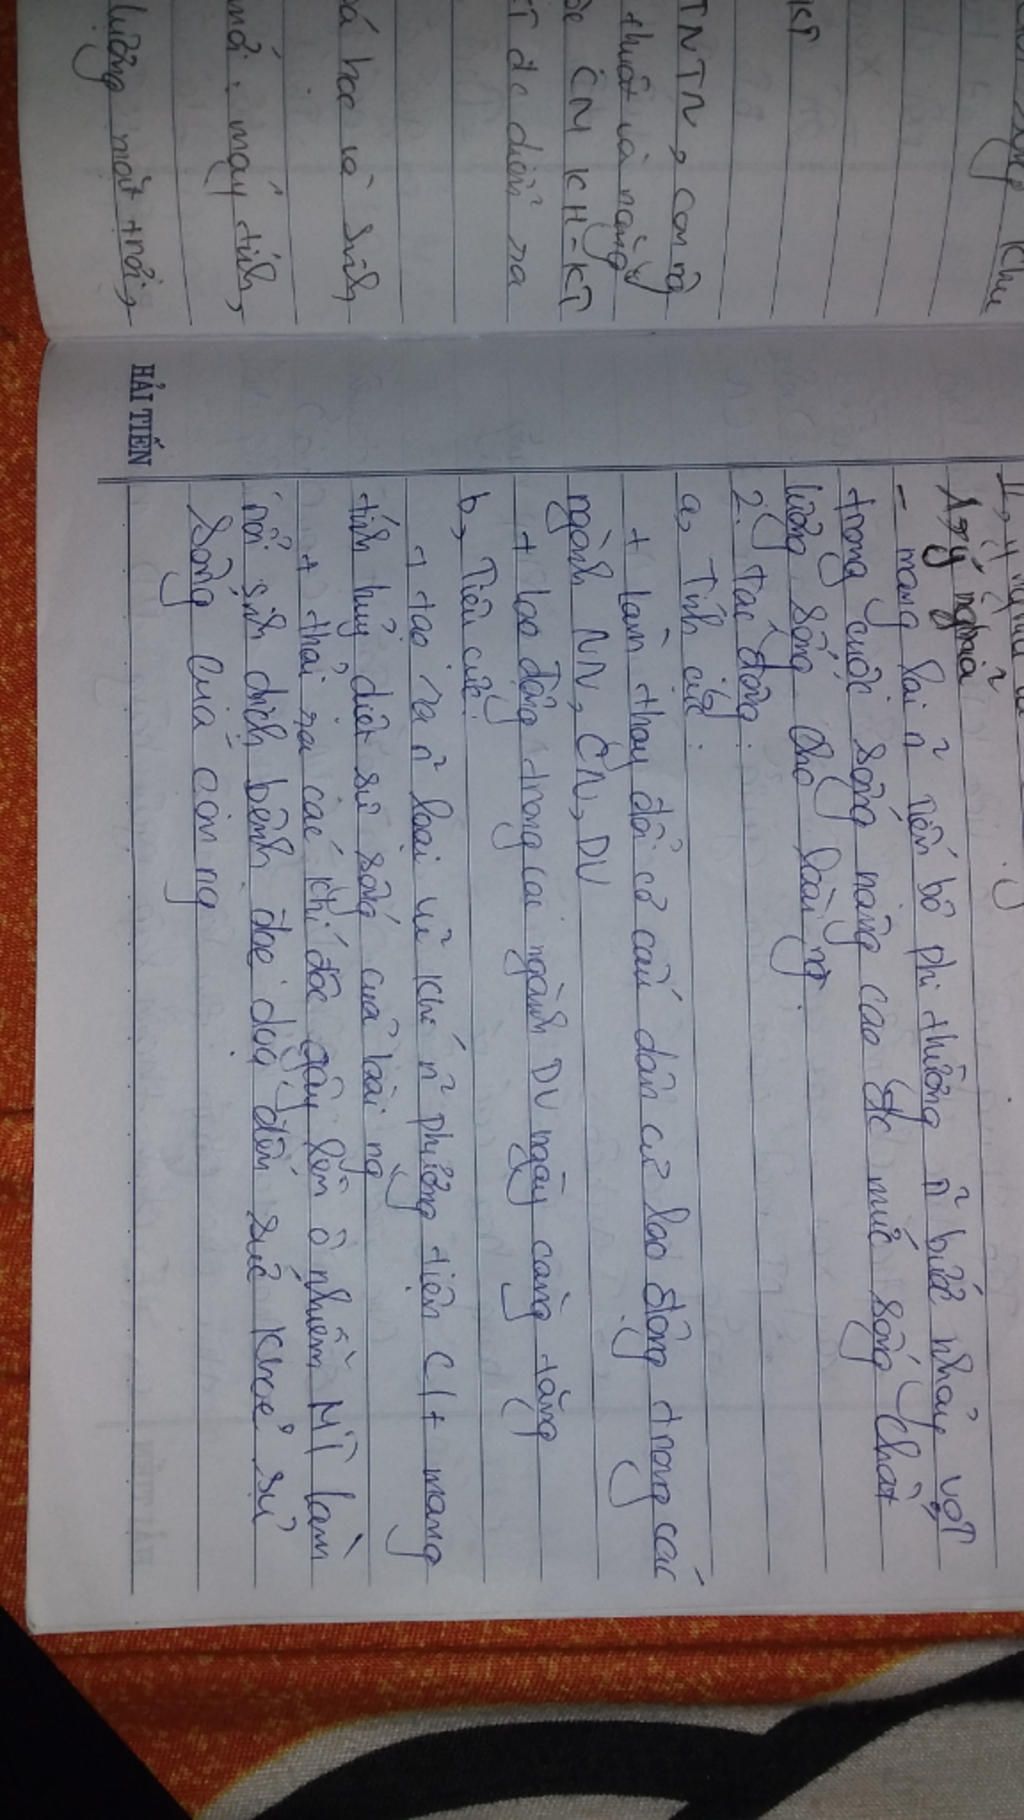 TNTN, con ng
thuật và năng
KH-KT
KT đc diễn ra
học và sinh
máy tính,
lượng mặt trời,
1, ý nghĩa
- mang lại n~ tiến bộ phi thường n~ bước nhảy vọt
trong cuộc sống nâng cao đc mức sống chất
lượng sống cho loài ng.
2. Tác động:
a, Tích cực:
+ làm thay đổi cơ cấu dân cư lao động trong các
ngành NN, CN, DV
+ lao động trong các ngành DV ngày càng tăng
b, Tiêu cực:
+ tạo ra n~ loại vũ khí n~ phương tiện C/t mang
tính hủy diệt sự sống của loài ng
+ thải ra các khí độc gây lên ô nhiễm MT làm
nảy sinh dịch bệnh đe doạ đến sức khoẻ sự
sống của con ng
HẢI TIẾN